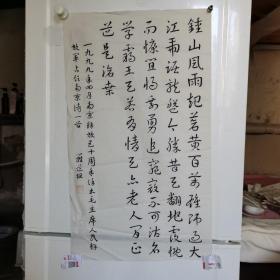 鍾山风雨起苍黄百万雄师过大
江虎踞龙盘今胜昔天翻地覆慨
而慷宜将剩勇追穷寇不可沽名
学霸王天若有情天亦老人间正
道是滄桑
一九九九年四月南京解放五十周年毛主席人民解
放军占领南京诗一首